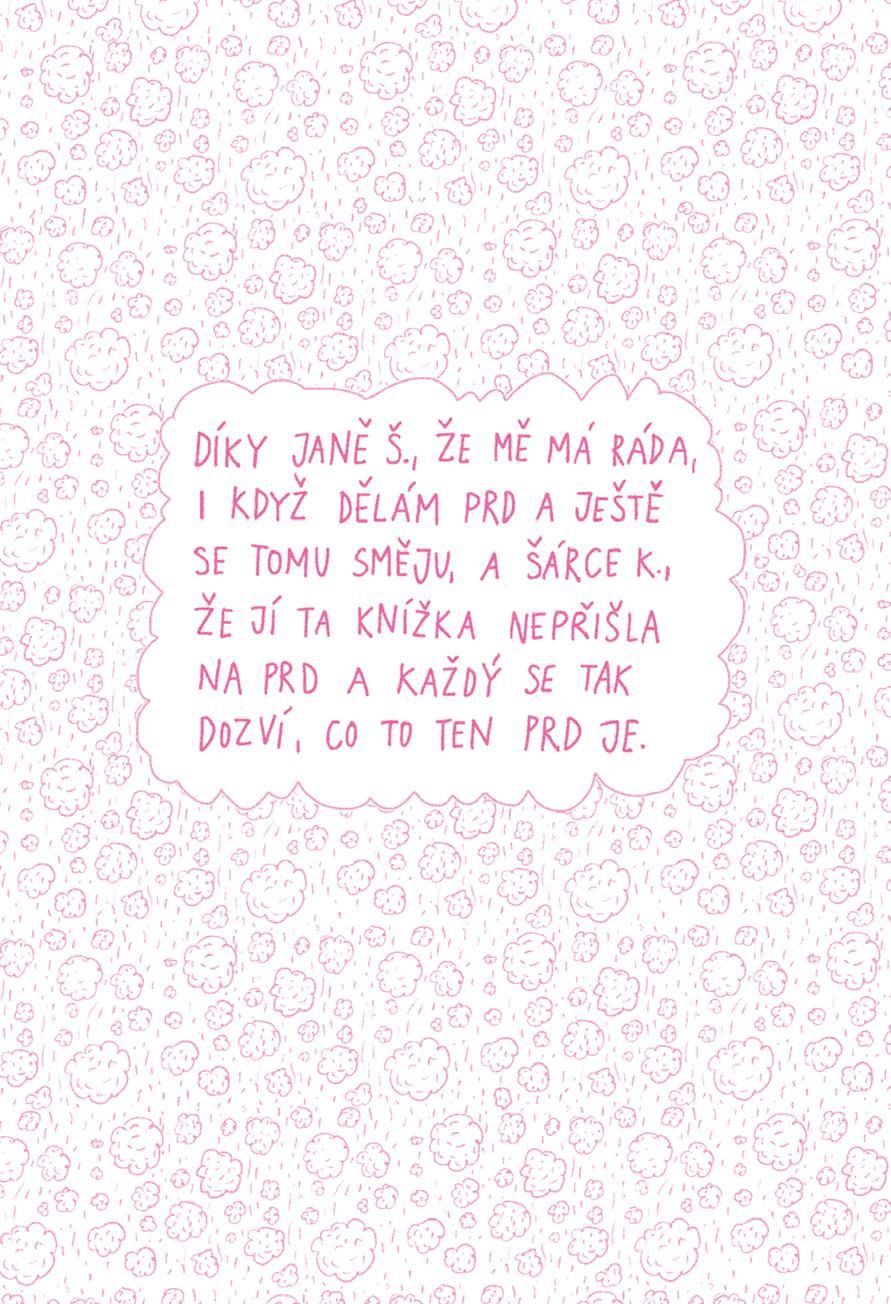 DÍKY JANĚ Š., ŽE MĚ MÁ RÁDA,
I KDYŽ DĚLÁM PRD A JEŠTĚ
SE TOMU SMĚJU, A ŠÁRCE K.,
ŽE JÍ TA KNÍŽKA NEPŘIŠLA
NA PRD A KAŽDÝ SE TAK
DOZVÍ, CO TO TEN PRD JE.